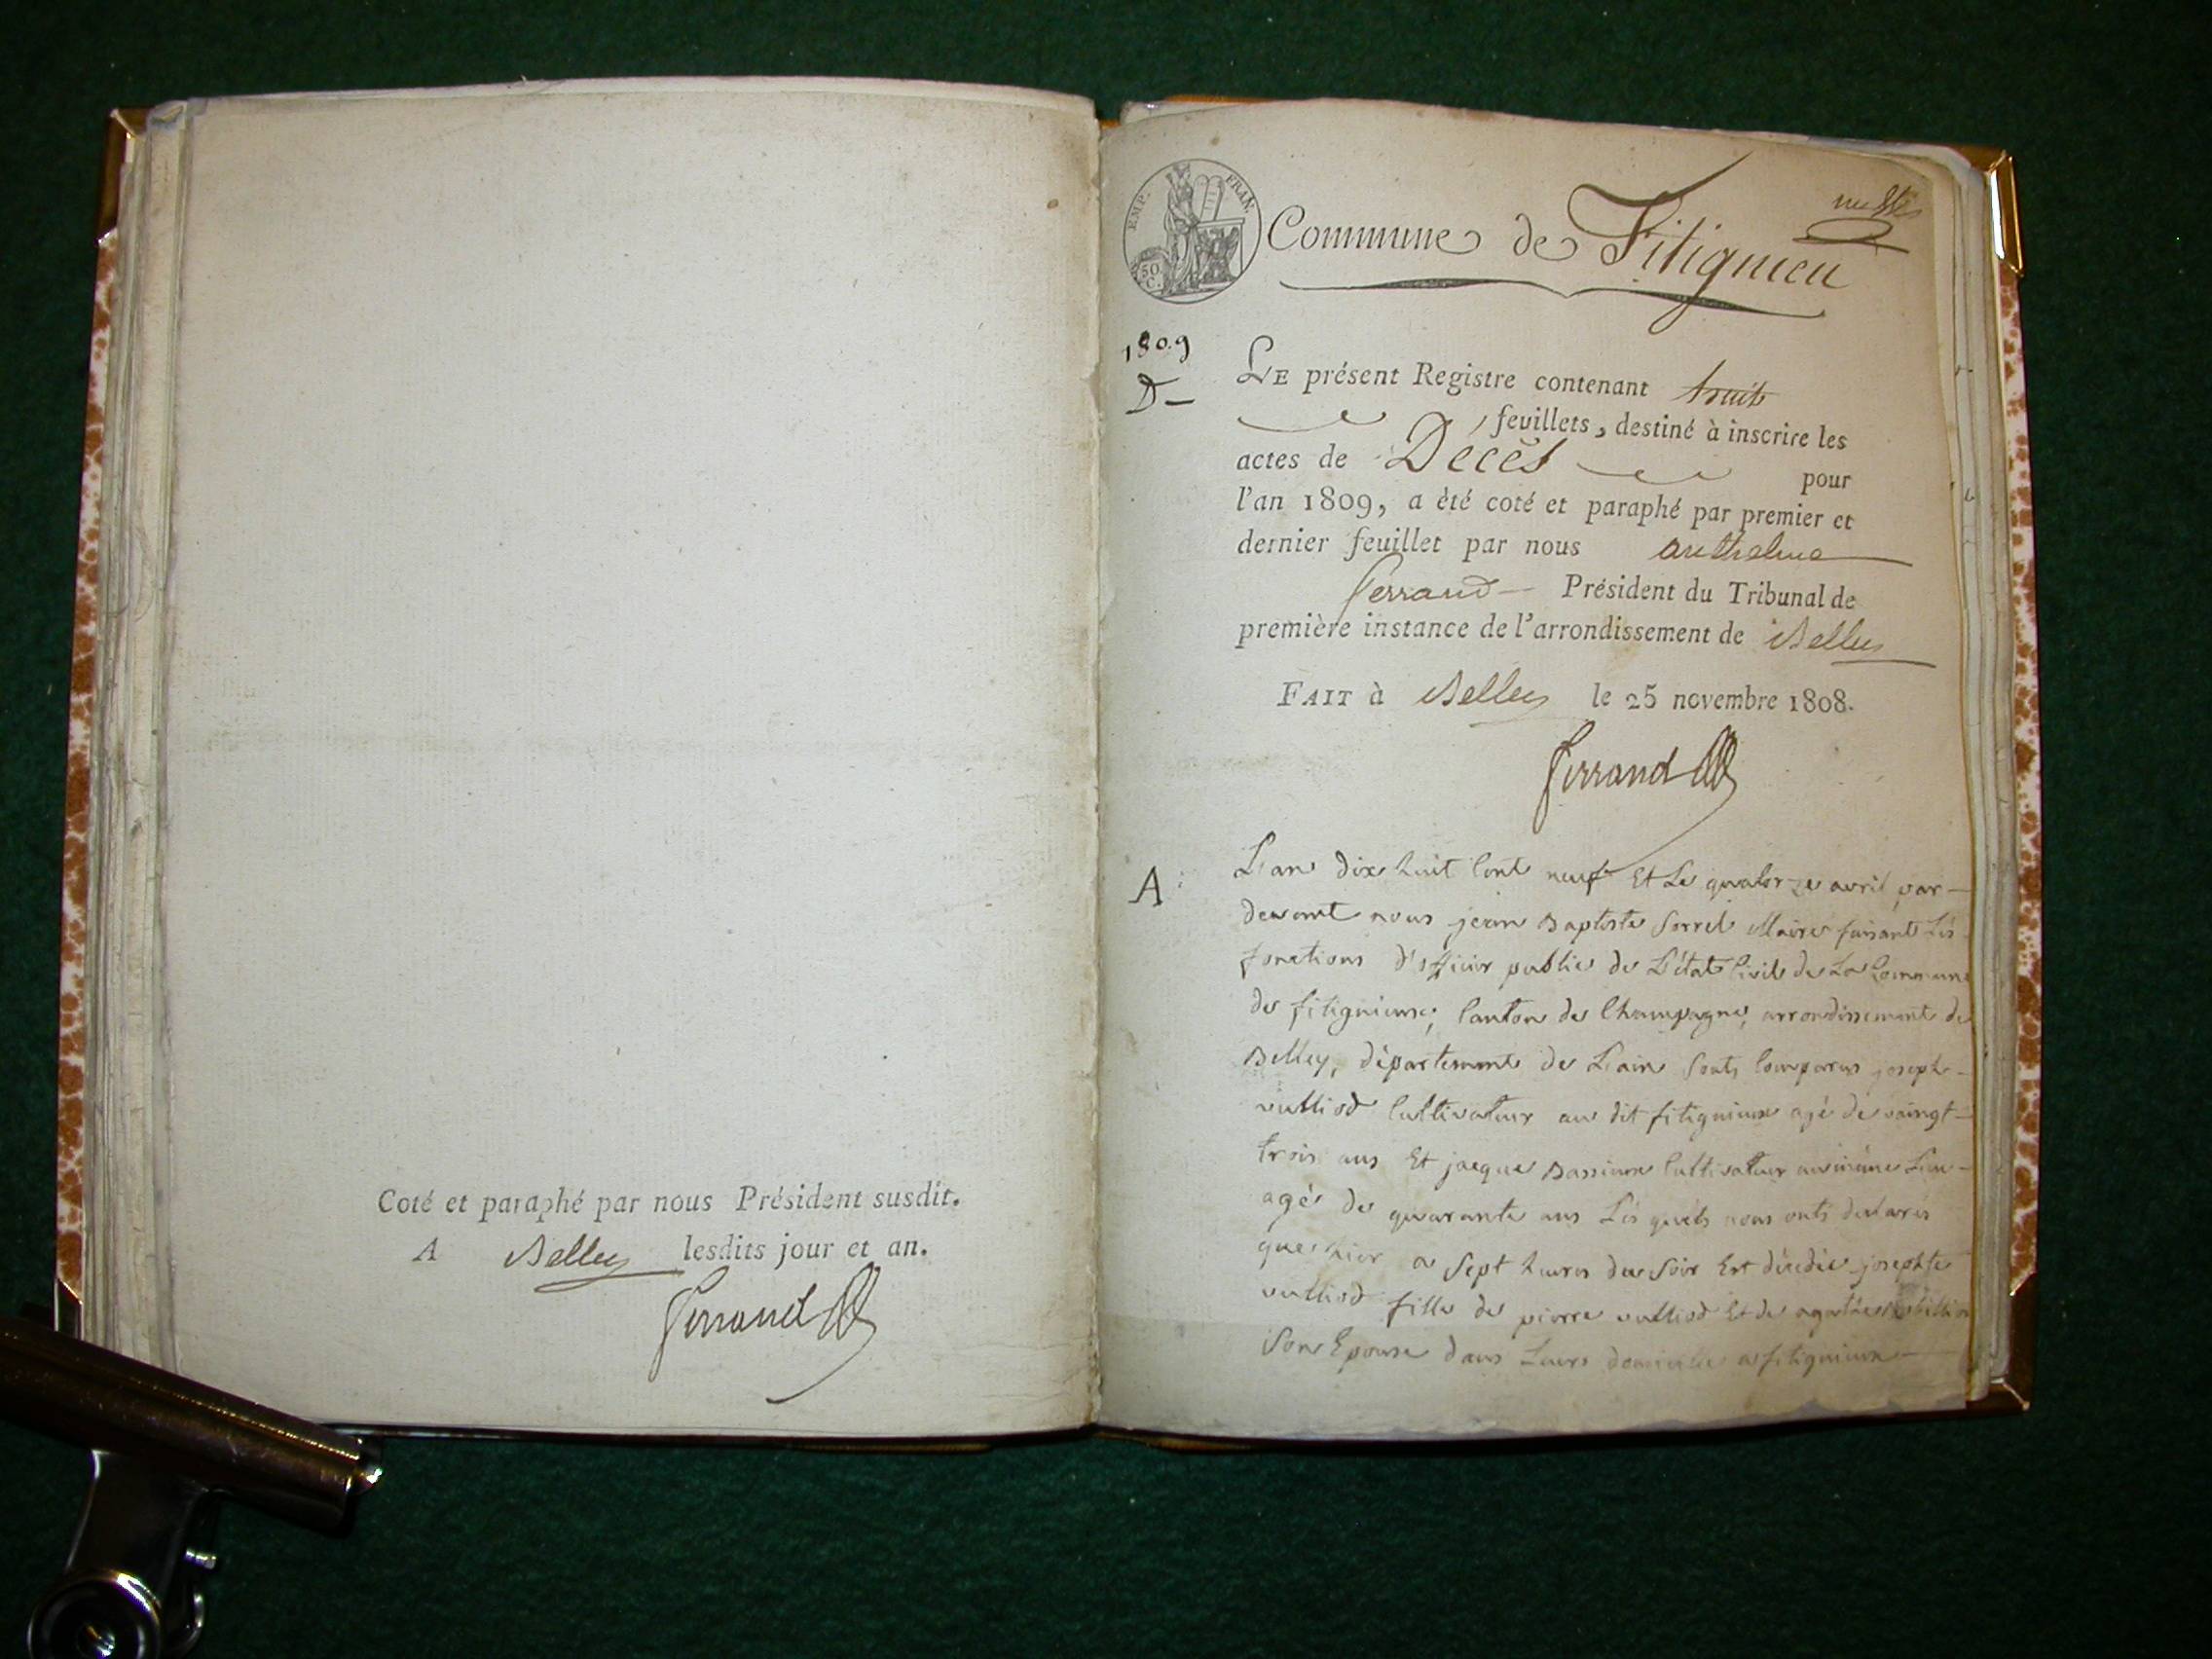 Coté et paraphé par nous Président susdit.
A Belley lesdits jour et an.
Ferrand
EMP. FRAN.
50 C.
Commune de Fitignieu
1809
D
LE présent Registre contenant huit
feuillets, destiné à inscrire les
actes de Décès pour
l'an 1809, a été coté et paraphé par premier et
dernier feuillet par nous anthelme
ferrand Président du Tribunal de
première instance de l'arrondissement de Belley
FAIT à Belley le 25 novembre 1808.
Ferrand
A
L'an dix huit Cent neuf Et Le quatorze avril par
devant nous jean Baptiste Sorrel Maire faisant Les
fonctions d'officier public de L'état Civil de La Commune
de fitignieux, Canton de Champagne, arrondissement de
Belley, département de L'ain Sonts Comparus joseph
vulliod Cultivateur au dit fitignieux agé de vaingt
trois ans Et jacque Bassieux Cultivateur au même Lieu
agé de quarante ans Les quels nous onts declarés
que hier a Sept heures du Soir Est décédée josephte
vulliod fille de pierre vulliod Et de agathe
Son Epouse dans Leurs domicille a fitignieux